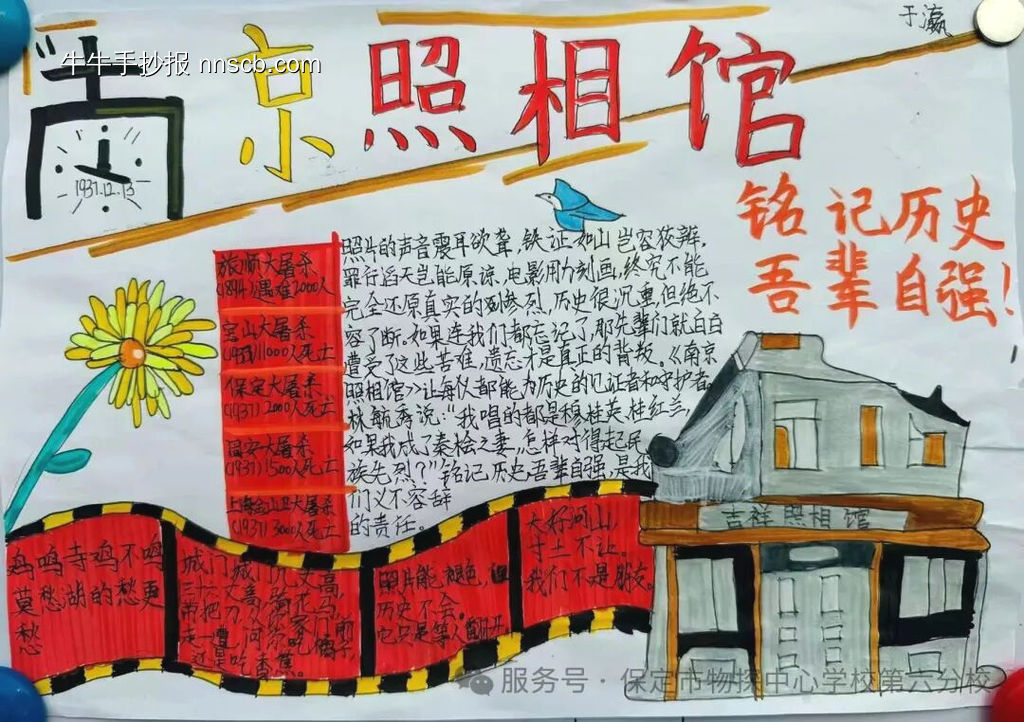 于瀛
牛牛手抄报 nnscb.com
南京照相馆
1937.12.13
铭记历史
吾辈自强!
旅顺大屠杀
(1894)遇难2000人
宝山大屠杀
(1937)1000人死亡
保定大屠杀
(1937)2000人死亡
固安大屠杀
(1937)1500人死亡
上海金山卫大屠杀
(1937)3000人死亡
照片的声音震耳欲聋,铁证如山岂容狡辩,
罪行滔天岂能原谅,电影用力刻画,终究不能
完全还原真实的惨烈,历史很沉重,但绝不
容了断。如果连我们都忘记了,那先辈们就白白
遭受了这些苦难,遗忘才是真正的背叛。《南京
照相馆》让每人都能为历史的见证者和守护者。
林毓秀说:"我唱的都是穆桂英,梁红兰,
如果我成了秦桧之妻,怎样对得起民
族先烈?"铭记历史,吾辈自强,是我
们义不容辞
的责任。
吉祥照相馆
鸡鸣寺鸡不鸣
莫愁湖的愁更
愁
城门城门几丈高,
三十六丈高,骑花马,
带把刀,
走一遭,问你吃橘子,
还是吃香蕉。
照片能褪色,但
历史不会。
它只是等人翻开
大好河山,
寸土不让。
我们不是朋友。
服务号·保定市物探中心学校第六分校